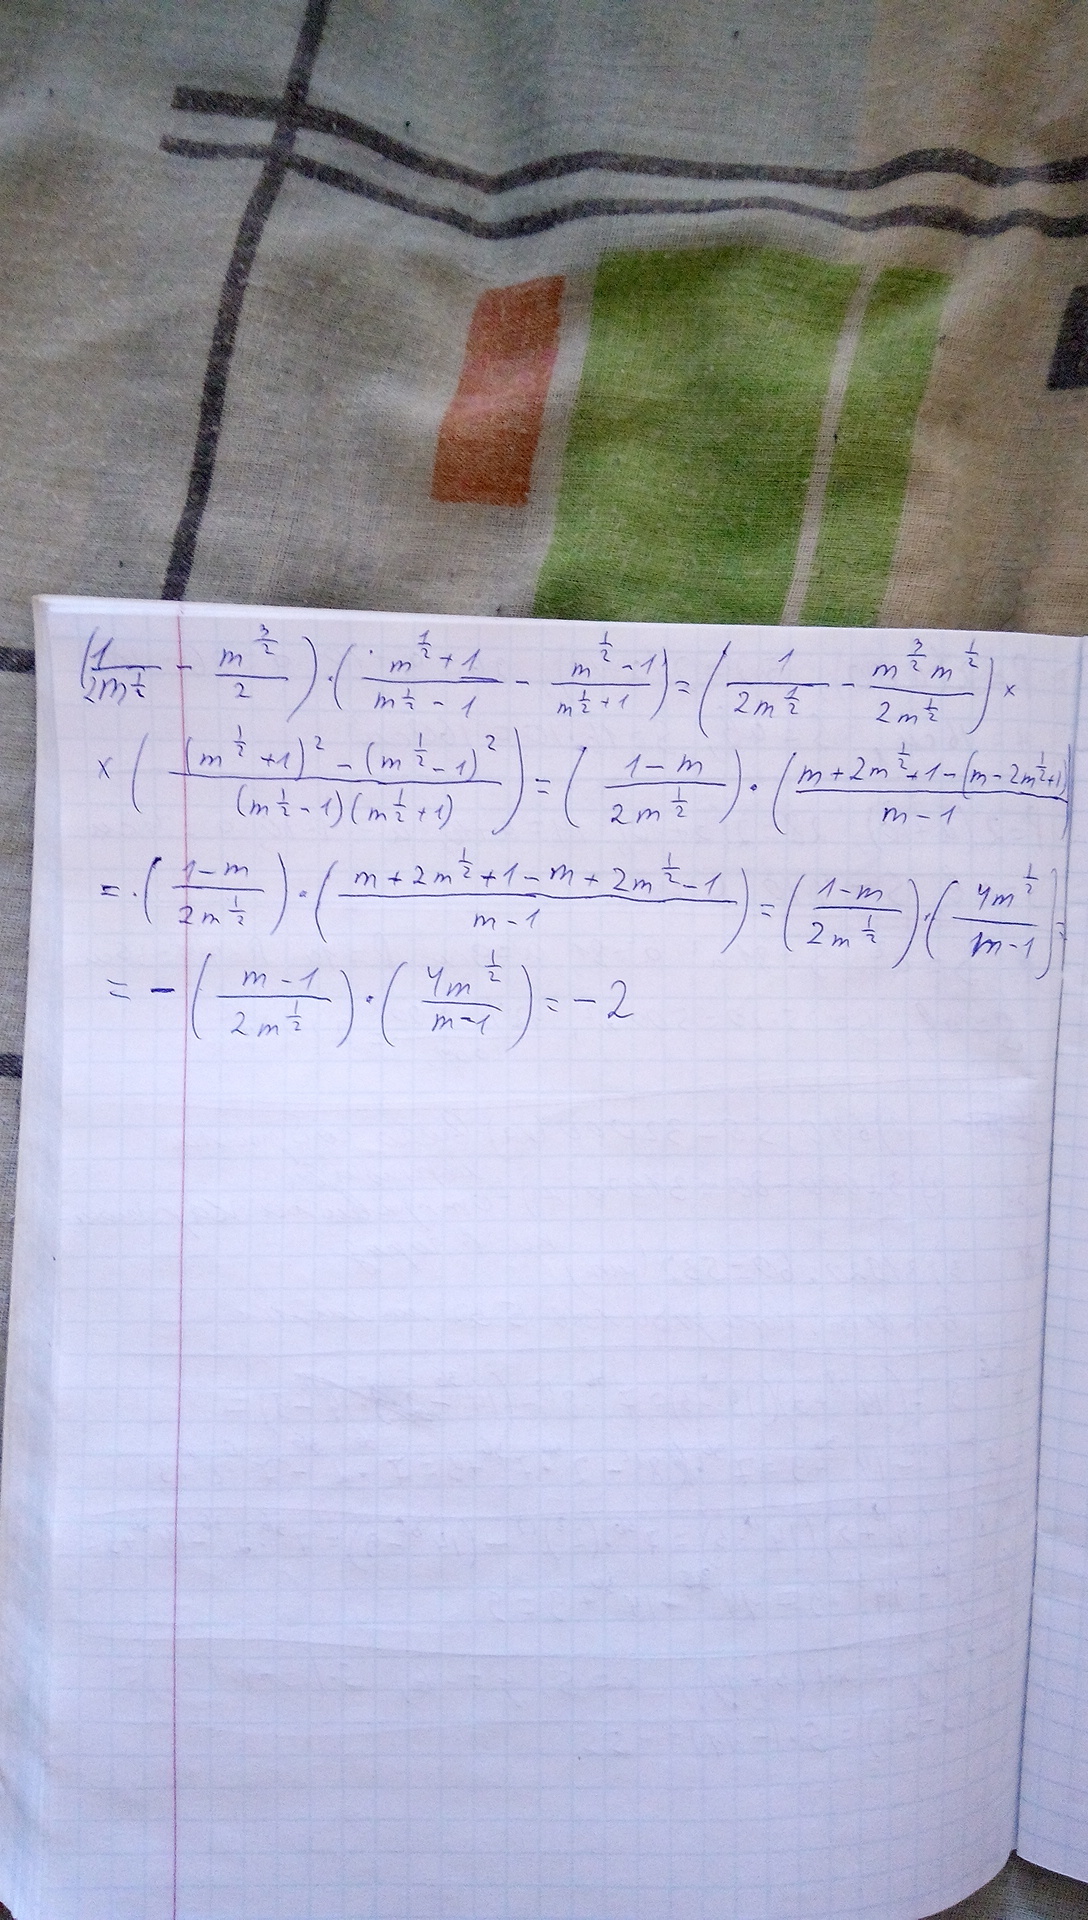 (1/(2m^(1/2)) - m^(3/2)/2) · ((m^(1/2)+1)/(m^(1/2)-1) - (m^(1/2)-1)/(m^(1/2)+1)) = (1/(2m^(1/2)) - (m^(3/2) m^(1/2))/(2m^(1/2))) ×
× (((m^(1/2)+1)^2 - (m^(1/2)-1)^2)/((m^(1/2)-1)(m^(1/2)+1))) = ((1-m)/(2m^(1/2))) · ((m+2m^(1/2)+1-(m-2m^(1/2)+1))/(m-1))
= · ((1-m)/(2m^(1/2))) · ((m+2m^(1/2)+1-m+2m^(1/2)-1)/(m-1)) = ((1-m)/(2m^(1/2))) · ((4m^(1/2))/(m-1)) =
= - ((m-1)/(2m^(1/2))) · ((4m^(1/2))/(m-1)) = -2